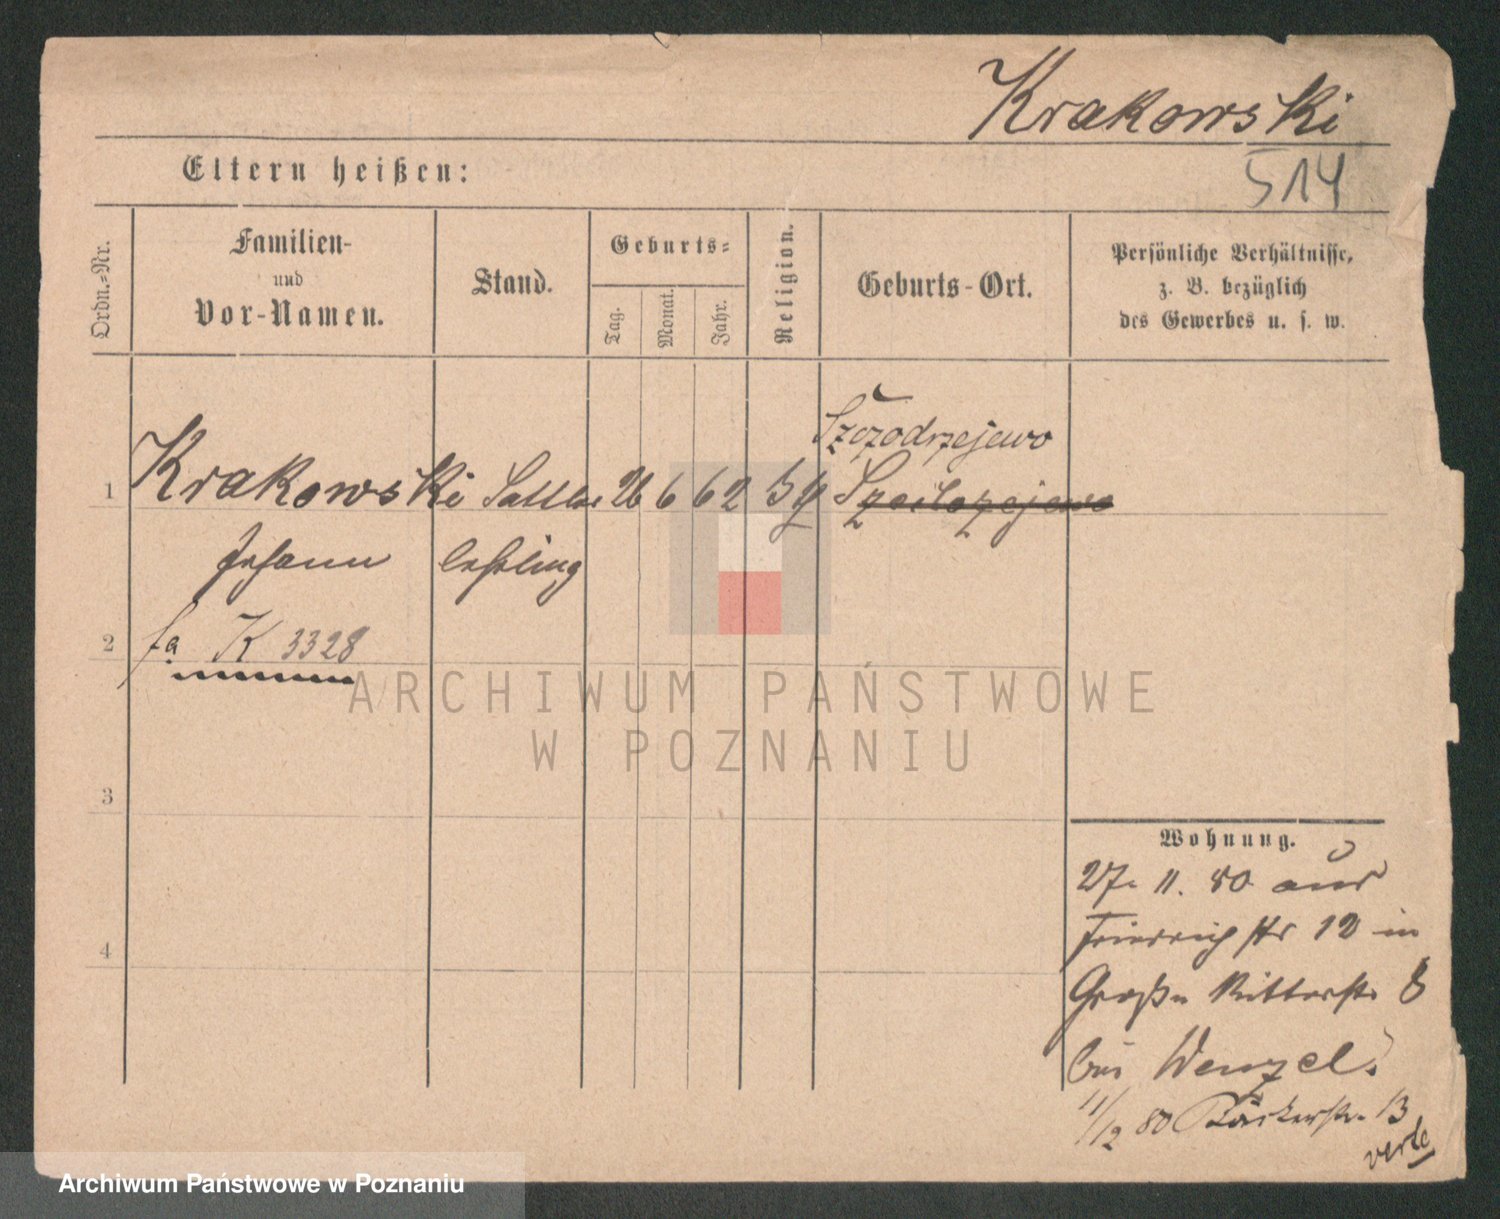 Krakowski
514
Eltern heißen:
Ordn.-Nr.
Familien-
und
Vor-Namen.
Stand.
Geburts-
Tag.
Monat.
Jahr.
Religion.
Geburts-Ort.
Persönliche Verhältnisse,
z. B. bezüglich
des Gewerbes u. s. w.
Szczodrzejewo
1 Krakowski Sattler 26 6 62
Johann lehrling
2 K 3328
3
4
Wohnung.
27. 11. 80 aus
Friedrichstr 12 in
Große Ritterstr 8
bei Wenzel.
11/12 80 Bäckerstr. 13
verte
ARCHIWUM PAŃSTWOWE
W POZNANIU
Archiwum Państwowe w Poznaniu